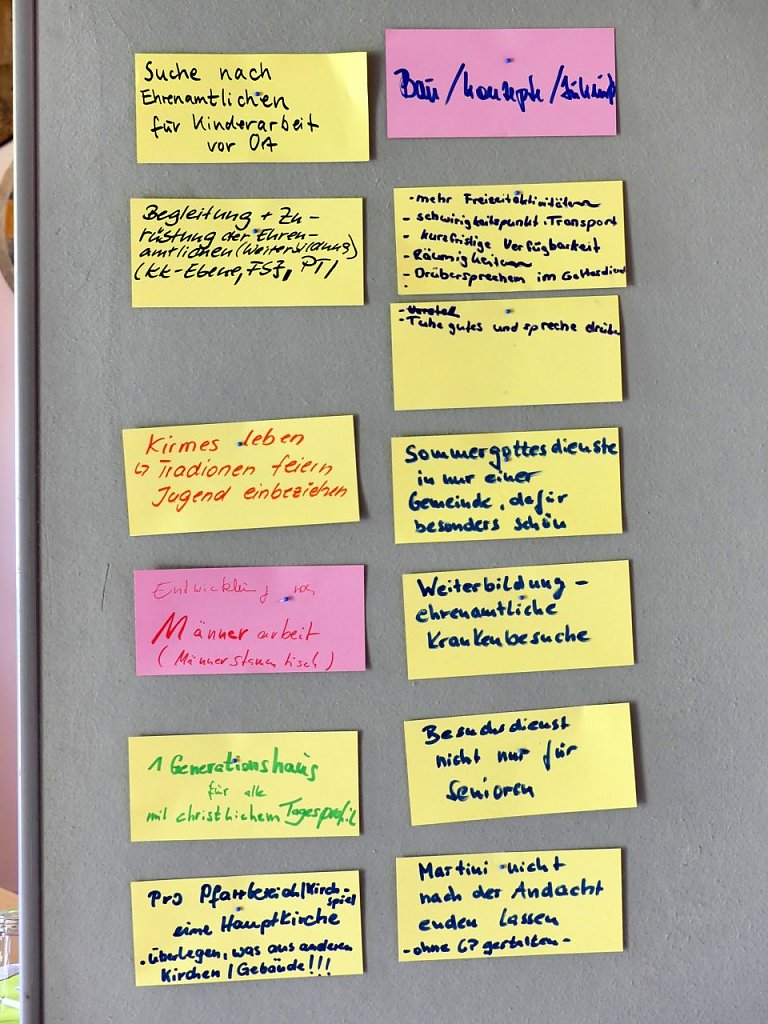 Suche nach
Ehrenamtlichen
für Kinderarbeit
vor Ort
Begleitung + Zu-
rüstung der Ehren-
amtlichen (Weiterbildung)
(KK-Ebene, FSJ, PTI
Kirmes leben
↳ Tradionen feiern
Jugend einbeziehen
Entwicklung von
Männerarbeit
(Männerstammtisch)
1 Generationshaus
für alle
mit christlichem Tagesprofil
Pro Pfarrbereich/Kirch-
spiel
eine Hauptkirche
• überlegen, was aus anderen
Kirchen / Gebäude!!!
Bau / Konzepte / Zukunft
- mehr Freizeitaktivitäten
- schwirigkeitspunkt. Transport
- kurzfristige Verfügbarkeit
- Räumigkeiten
- Drübersprechen im Gottesdienst
- Tuhe gutes und spreche drüber
Sommergottesdienste
in nur einer
Gemeinde, dafür
besonders schön
Weiterbildung -
ehrenamtliche
Krankenbesuche
Besuchsdienst
nicht nur für
Senioren
Martini nicht
nach der Andacht
enden lassen
- ohne GP gestalten -